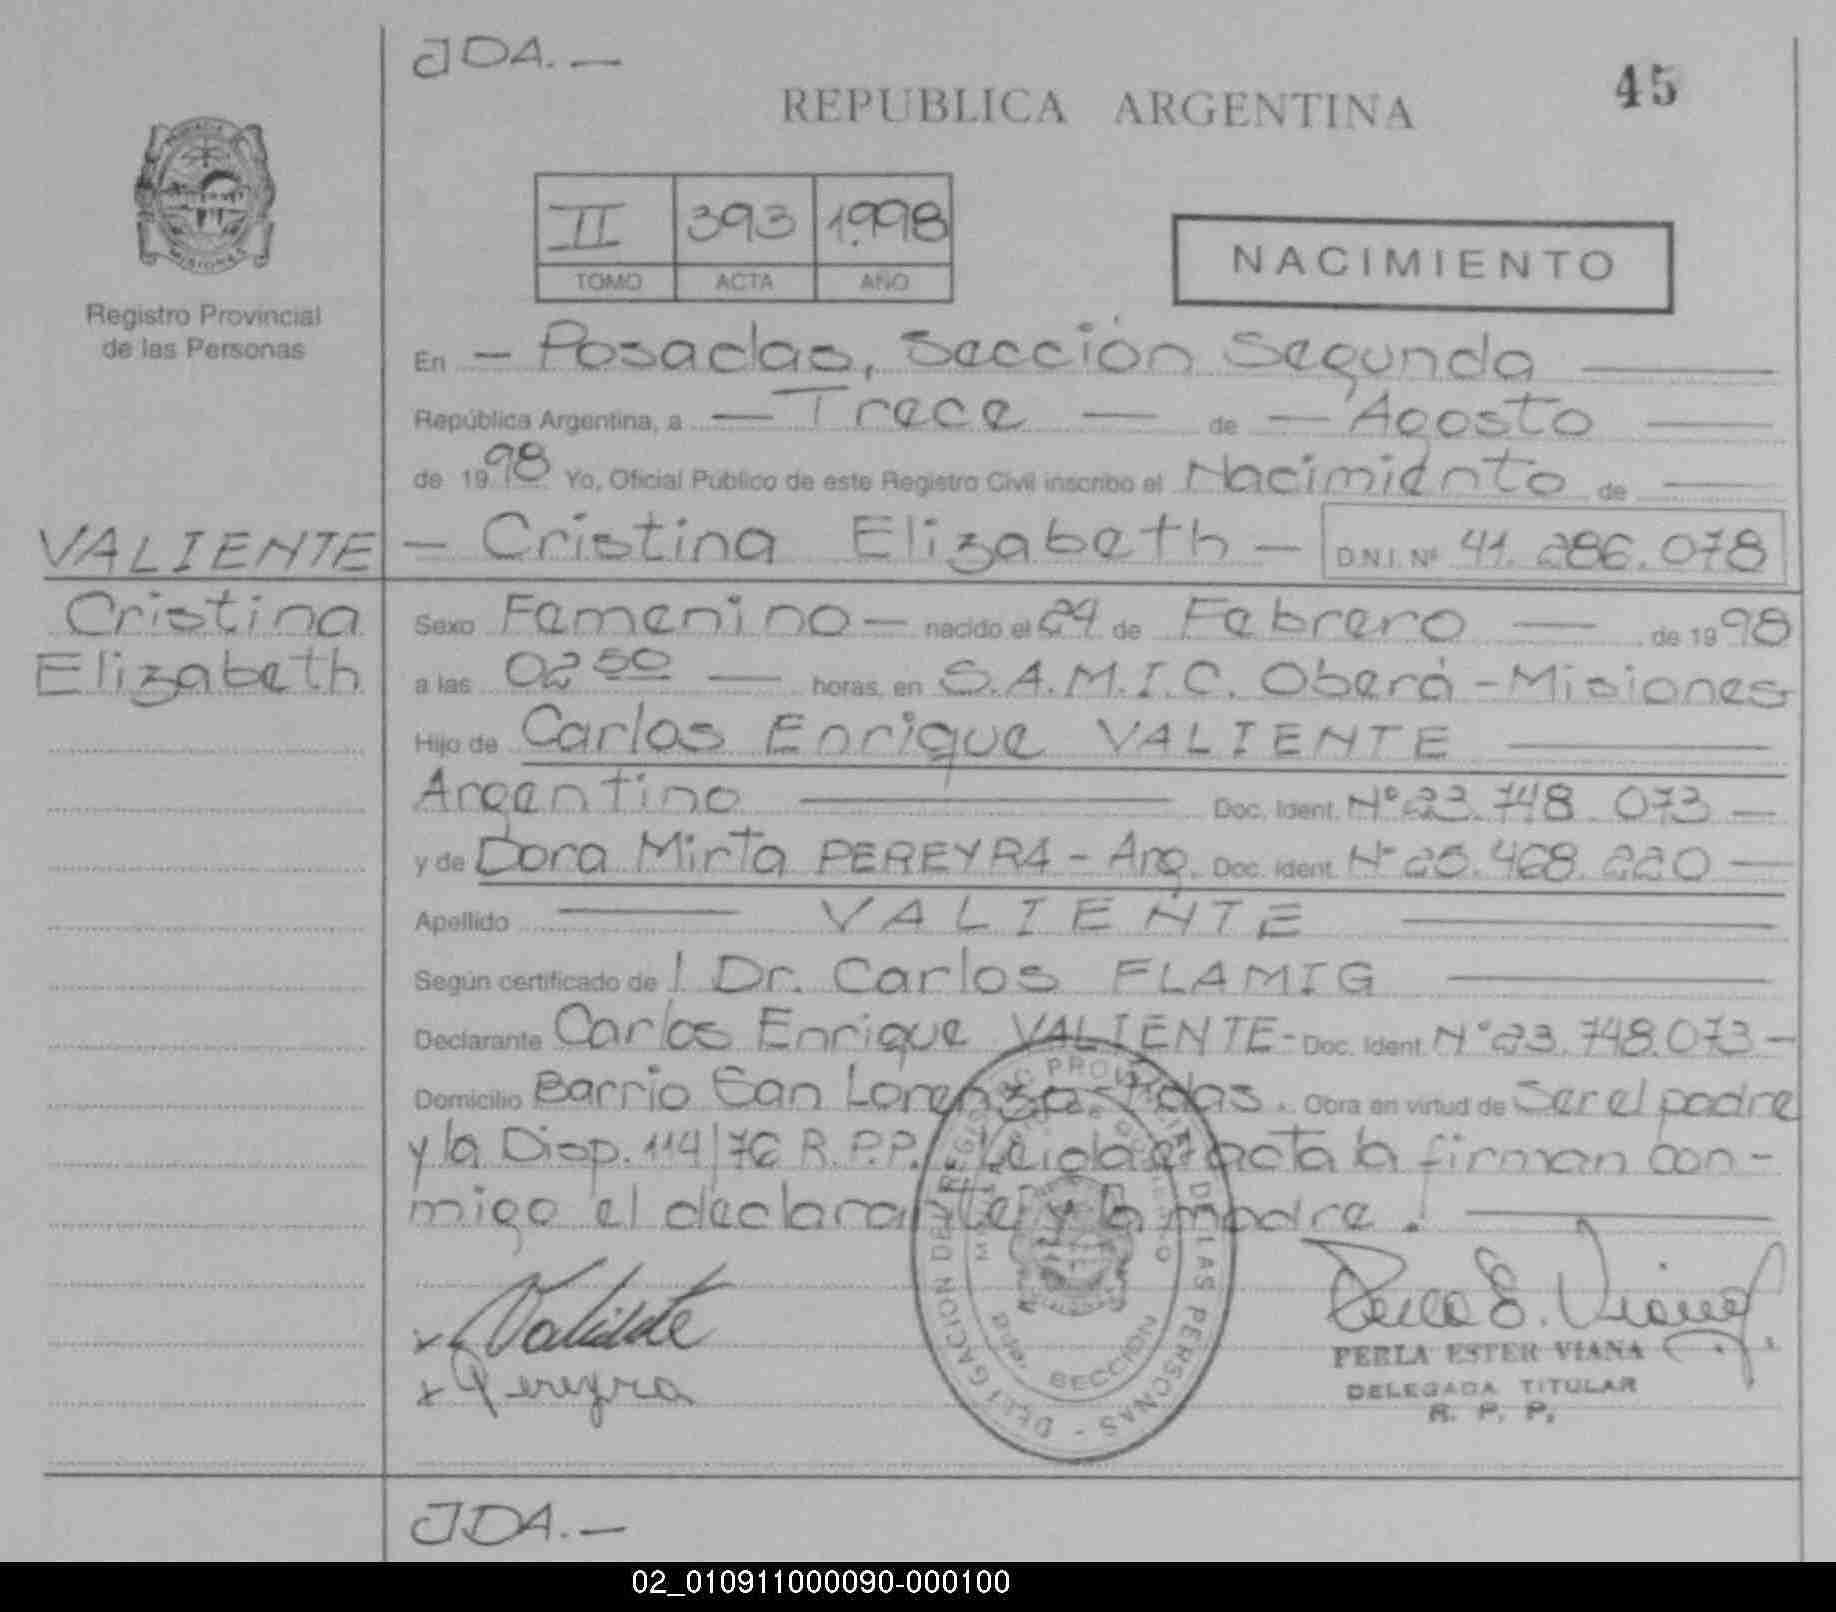 JDA.—
45
REPUBLICA ARGENTINA
II 393 1.998
TOMO ACTA AÑO
NACIMIENTO
Registro Provincial
de las Personas
En — Posadas, Sección Segunda —
República Argentina, a — Trece — de — Agosto —
de 19 98 Yo, Oficial Público de este Registro Civil inscribo el Nacimiento de —
VALIENTE
Cristina
Elizabeth
— Cristina Elizabeth — D.N.I. Nº 41.286.078
Sexo Femenino — nacido el 24 de Febrero — de 19 98
a las 02 50 — horas, en S.A.M.I.C. Oberá - Misiones
Hijo de Carlos Enrique VALIENTE —
Argentino — Doc. Ident. Nº 23.748.073 —
y de Dora Mirta PEREYRA - Arg. Doc. Ident. Nº 25.468.220 —
Apellido — VALIENTE —
Según certificado de l Dr. Carlos FLAMIG —
Declarante Carlos Enrique VALIENTE - Doc. Ident. Nº 23.748.073 —
Domicilio Barrio San Lorenzo - Pdas. Obra en virtud de Ser el padre
y la Disp. 114/76 R.P.P. Leida el acta la firman con-
migo el declarante y la madre. —
REGISTRO PROVINCIAL DE LAS PERSONAS - DELEGACION
SECCION
x Valiente
x Pereyra
Perla E. Viana
PERLA ESTER VIANA
DELEGADA TITULAR
R. P. P.
JDA.—
02_010911000090-000100